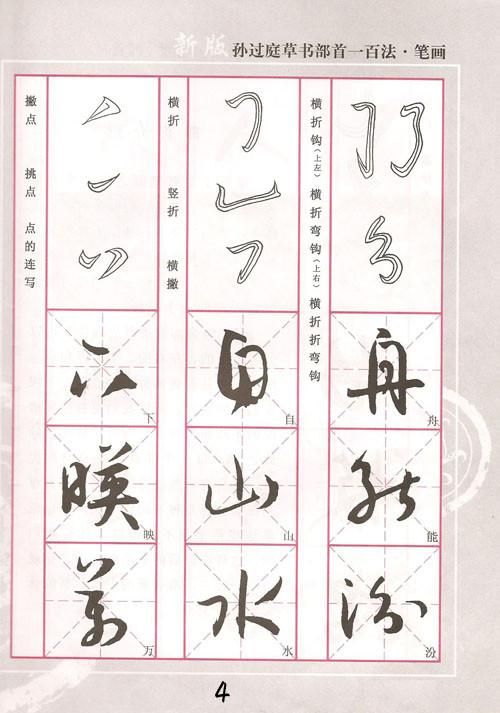 新版 孙过庭草书部首一百法·笔画
横折钩（上左） 横折弯钩（上右） 横折折弯钩
舟
能
汾
横折 竖折 横撇
自
山
水
撇点 挑点 点的连写
下
映
万
4